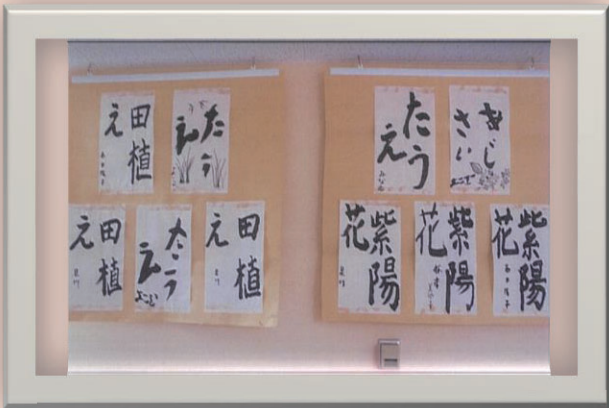 田植
え
たう
え
田植
え
たう
え
田植
え
たう
え
あじ
さい
紫陽
花
紫陽
花
紫陽
花